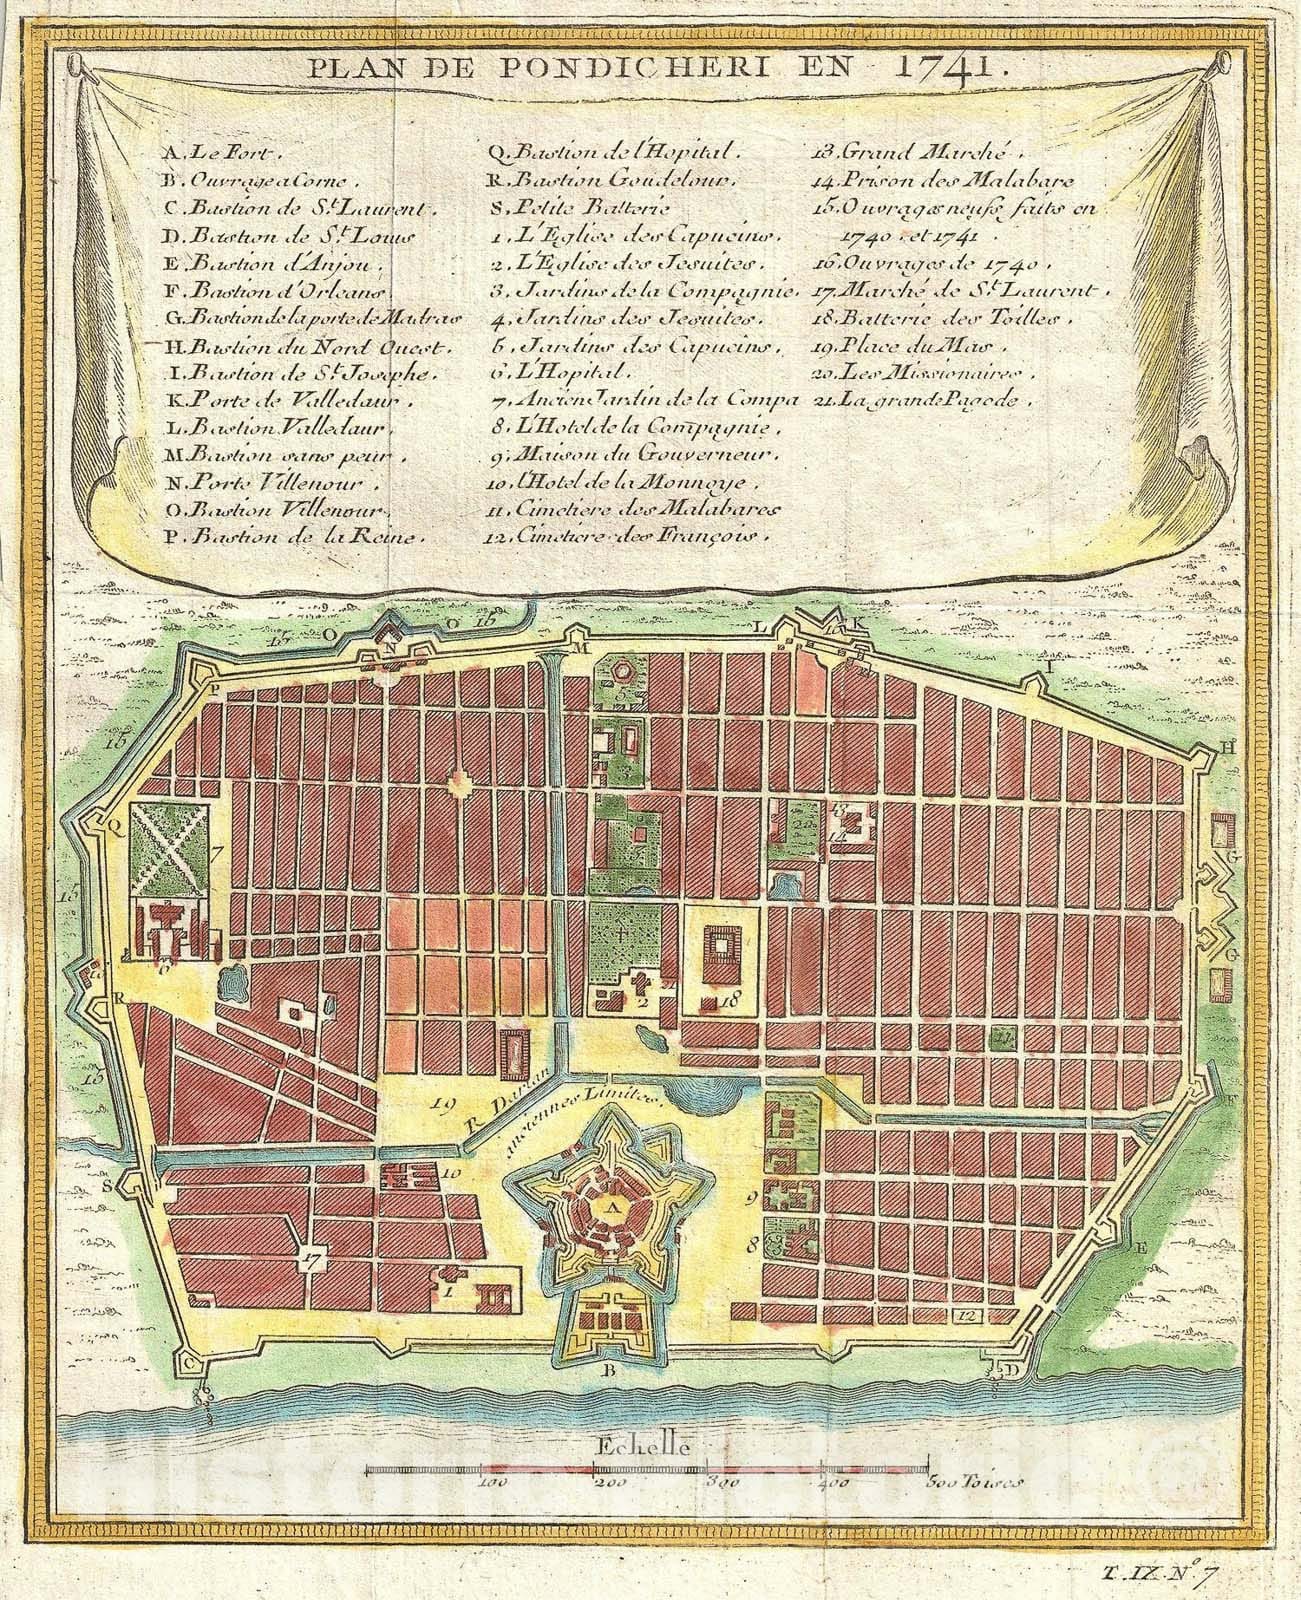 PLAN DE PONDICHERI EN 1741.
A. Le Fort.
B. Ouvrage a Corne.
C. Bastion de St. Laurent.
D. Bastion de St. Louis
E. Bastion d'Anjou.
F. Bastion d'Orleans
G. Bastion de la porte de Madras
H. Bastion du Nord Ouest.
I. Bastion de St. Josephe.
K. Porte de Valledaur.
L. Bastion Valledaur.
M. Bastion sans peur.
N. Porte Villenour.
O. Bastion Villenour.
P. Bastion de la Reine.
Q. Bastion de l'Hopital.
R. Bastion Goudelour.
S. Petite Batterie
1. L'Eglise des Capucins.
2. L'Eglise des Jesuites.
3. Jardins de la Compagnie.
4. Jardins des Jesuites.
5. Jardins des Capucins.
6. L'Hopital.
7. Ancien Jardin de la Compa
8. L'Hotel de la Compagnie.
9. Maison du Gouverneur.
10. l'Hotel de la Monnoye.
11. Cimetiere des Malabares
12. Cimetiere des François.
13. Grand Marché.
14. Prison des Malabare
15. Ouvrages neufs faits en
1740. et 1741.
16. Ouvrages de 1740.
17. Marché de St. Laurent.
18. Batterie des Toilles.
19. Place du Mas.
20. Les Missionaires.
21. La grande Pagode.
15
O
N
O
16
M
L
16
K
I
P
5
H
16
3
Q
7
20
13
14
G
15
6
G
15
R
2
21
18
11
15
19
R. Darian
anciennes Limites.
F
S
10
A
9
8
E
17
1
12
C
B
D
Echelle
100
200
300
400
500 Toises
T. IX. No. 7